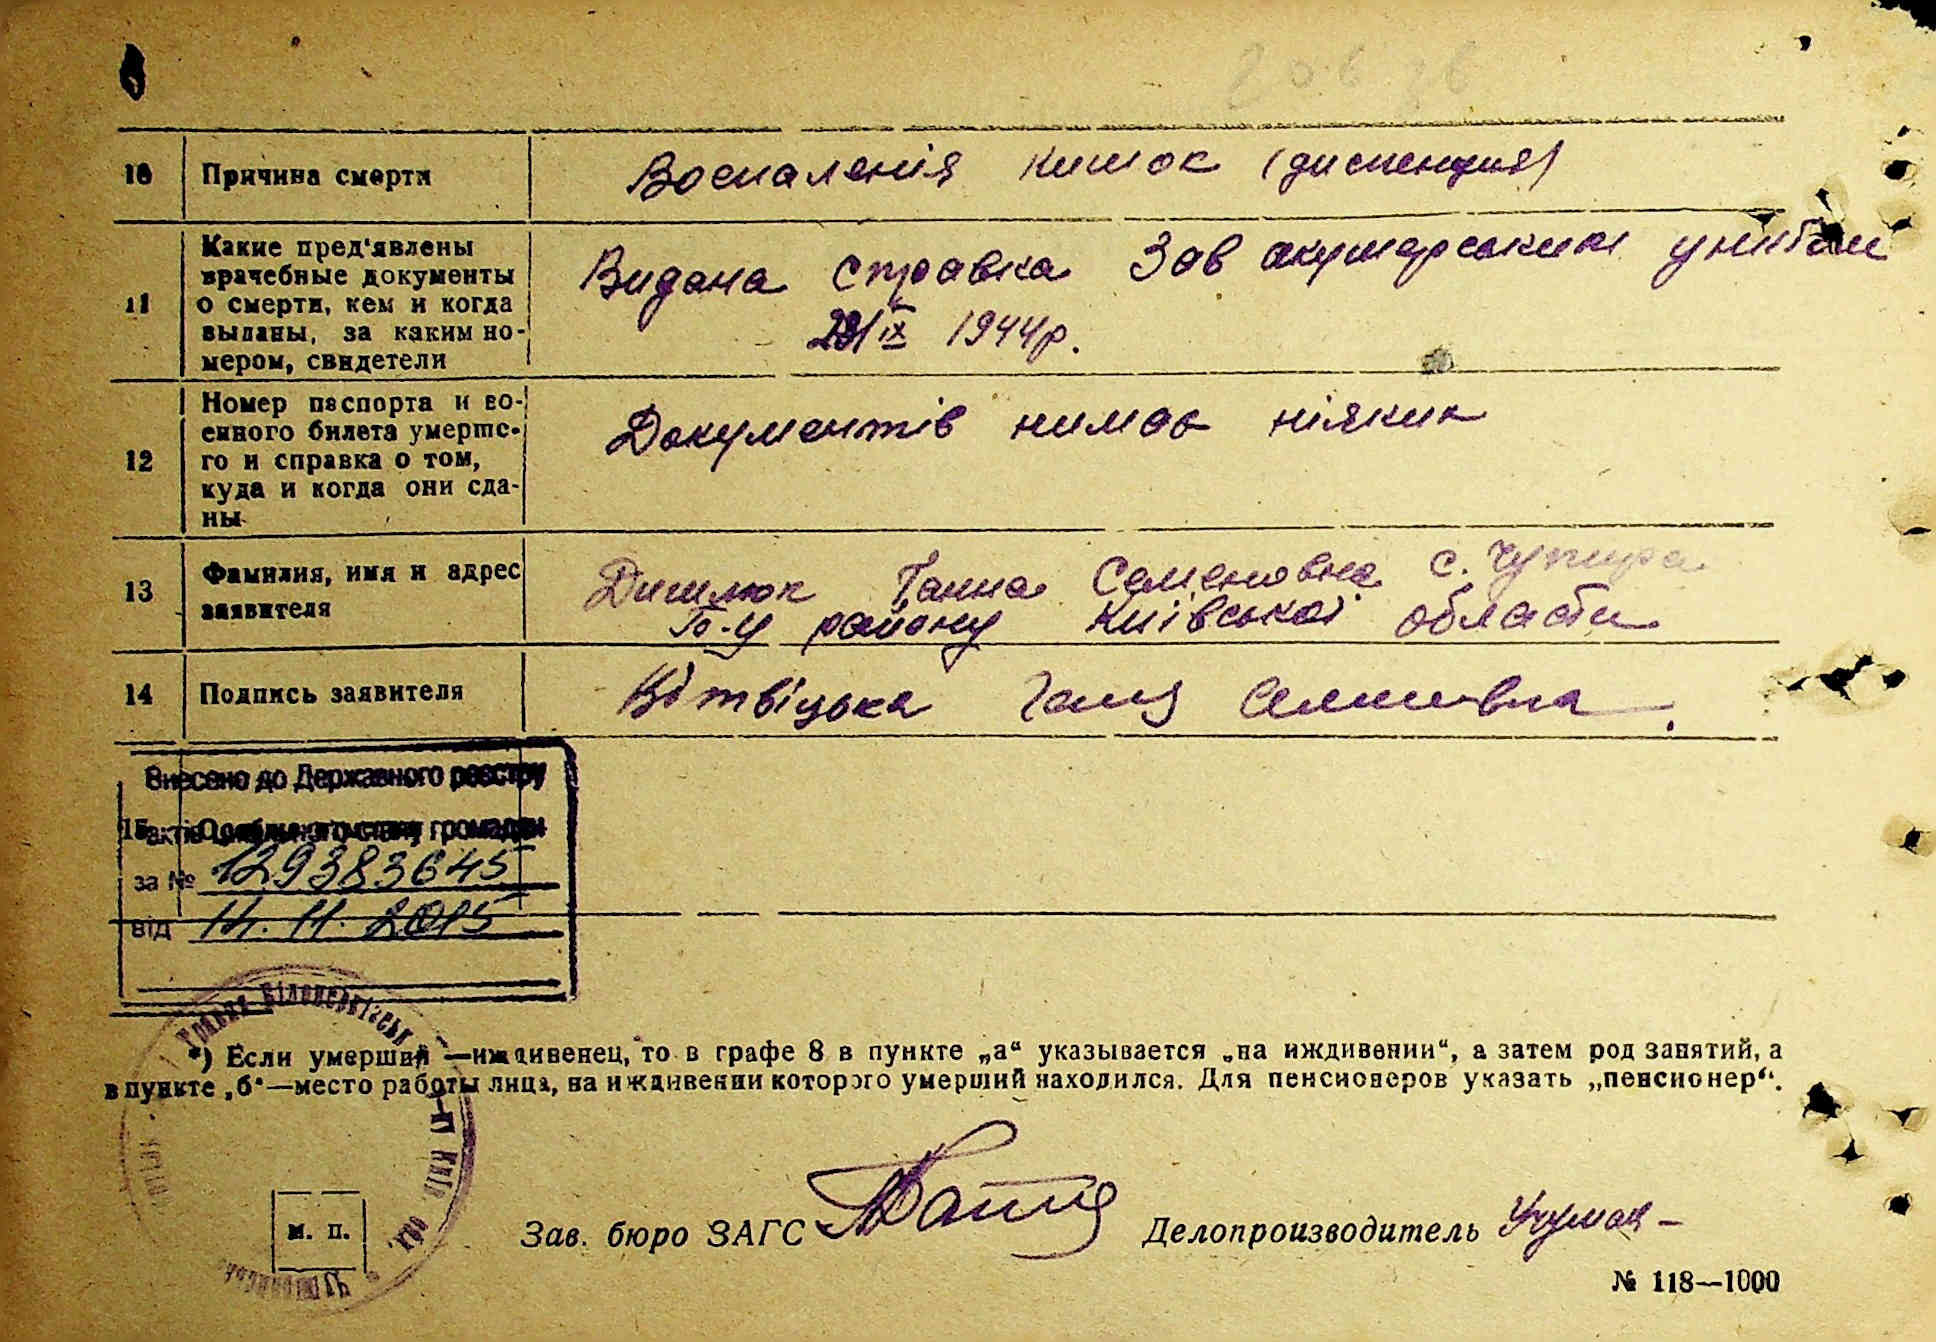 10 Причина смерти Воспаленія кишок (диспенция)
11 Какие пред'явлены
врачебные документы
о смерти, кем и когда
выданы, за каким но-
мером, свидетели
Видана справка Зав акушерським
29/IX 1944р.
12 Номер паспорта и во-
енного билета умерше-
го и справка о том,
куда и когда они сда-
ны
Документів нимає ніяких
13 Фамилия, имя и адрес
заявителя
Ганна Семеновна с. Чупира
району Київської области
14 Подпись заявителя Вітвіцька Ганя
Внесено до Державного реєстру
15 актів громадян
за № 129383645
від 14.11.2015
*) Если умерший —иждивенец, то в графе 8 в пункте „а“ указывается „на иждивении“, а затем род занятий, а
в пункте „б“—место работы лица, на иждивении которого умерший находился. Для пенсионеров указать „пенсионер“.
м. п.
Зав. бюро ЗАГС Делопроизводитель
№ 118—1000